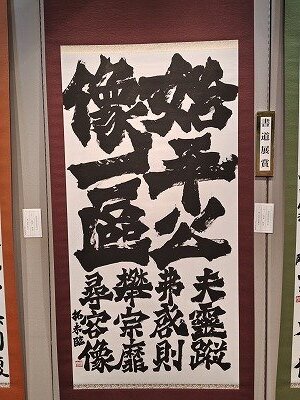 始平公
像一區
夫靈蹤
弗啓則
攀宗靡
尋容像
書道展賞